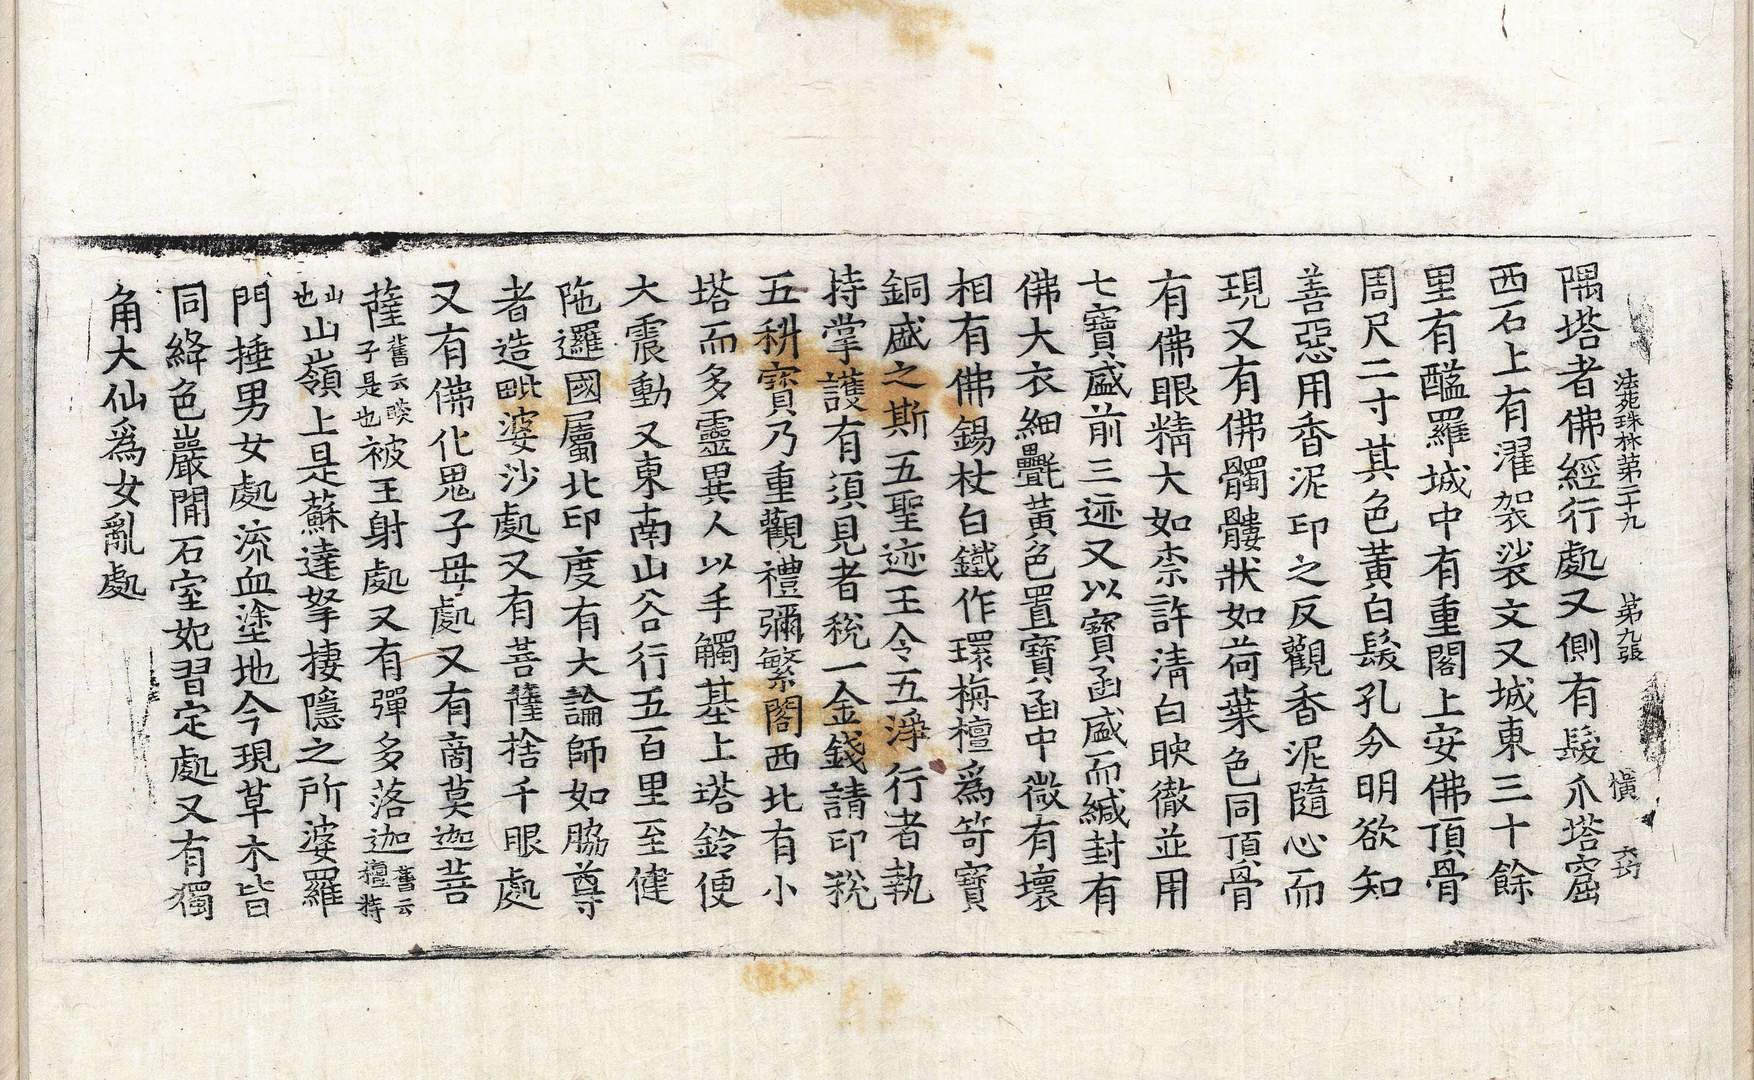 法苑珠林第二十九 第九張 橫
隅塔者佛經行處又側有髮爪塔窟
西石上有濯袈裟文又城東三十餘
里有醯羅城中有重閣上安佛頂骨
周尺二寸其色黃白髮孔分明欲知
善惡用香泥印之反觀香泥隨心而
現又有佛髑髏狀如荷葉色同頂骨
有佛眼精大如柰許清白映徹並用
七寶盛前三迹又以寶函盛而緘封有
佛大衣細㲲黃色置寶函中微有壞
相有佛錫杖白鐵作環栴檀爲笴寶
銅盛之斯五聖迹王令五淨行者執
持掌護有須見者稅一金錢請印稅
五科寶乃重觀禮彌繁閣西北有小
塔而多靈異人以手觸基上塔鈴便
大震動又東南山谷行五百里至健
陁邏國屬北印度有大論師如脇尊
者造毗婆沙處又有菩薩捨千眼處
又有佛化鬼子母處又有商莫迦菩
薩舊云睒子是也被王射處又有彈多落迦舊云檀特
山也山嶺上是蘇達拏棲隱之所婆羅
門捶男女處流血塗地今現草木皆
同絳色巖閒石室妃習定處又有獨
角大仙爲女亂處